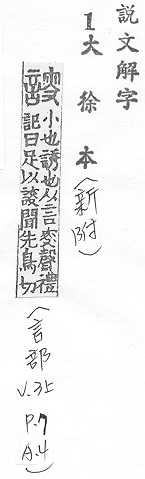 説文解字
1大徐本(新附)
謏
小也誘也从言叜聲禮
記曰足以謏聞先鳥切
(言部 V.35 P.7 A.4)